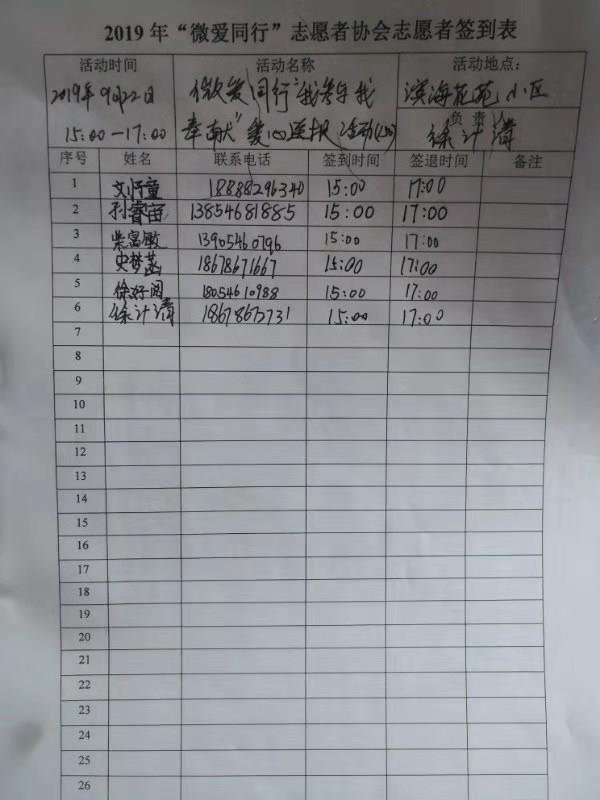 2019 年“微爱同行”志愿者协会志愿者签到表
活动时间 活动名称 活动地点：
2019年9月22日 微爱同行"我参与我 滨海花苑小区
负责人
15:00-17:00 奉献"爱心送报活动 徐计清
序号 姓名 联系电话 签到时间 签退时间 备注
1 18888296340 15:00 17:00
2 孙睿宙 13854681885 15:00 17:00
3 柴富敏 13905460796 15:00 17:00
4 史梦菡 18678671667 15:00 17:00
5 徐好阅 18054610988 15:00 17:00
6 徐计清 18678673731 15:00 17:00
7
8
9
10
11
12
13
14
15
16
17
18
19
20
21
22
23
24
25
26